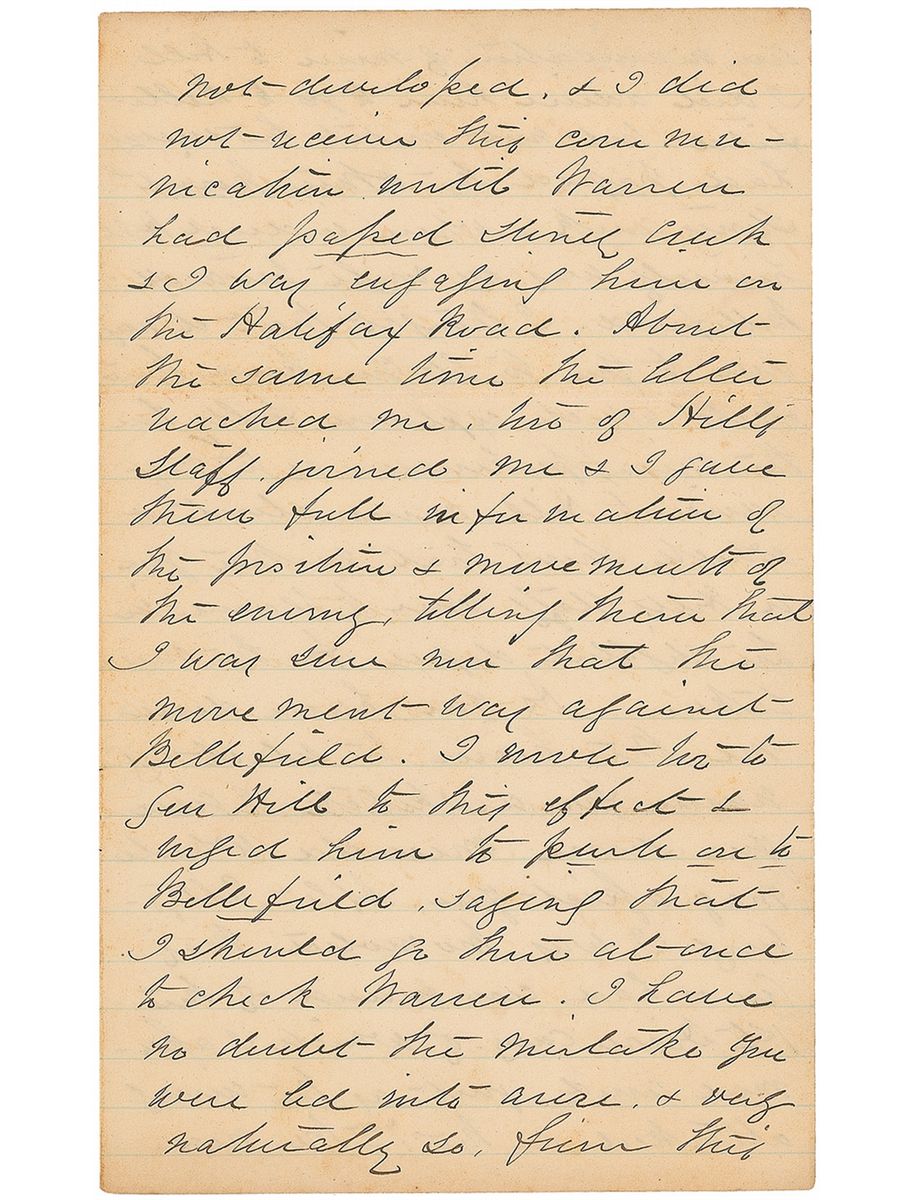 not developed. & I did
not receive this commu-
nication until Warren
had passed Stoney Creek
& I was engaging him on
the Halifax Road. About
the same time the letter
reached me, two of Hill's
Staff. joined me & I gave
them full information of
the position & movements of
the enemy, telling them that
I was sure now that the
movement was against
Bellefield. I wrote too to
Gen Hill to this effect &
urged him to push on to
Bellefield, saying that
I should go there at once
to check Warren. I have
no doubt the mistake you
were led into arose, & very
naturally so, from this